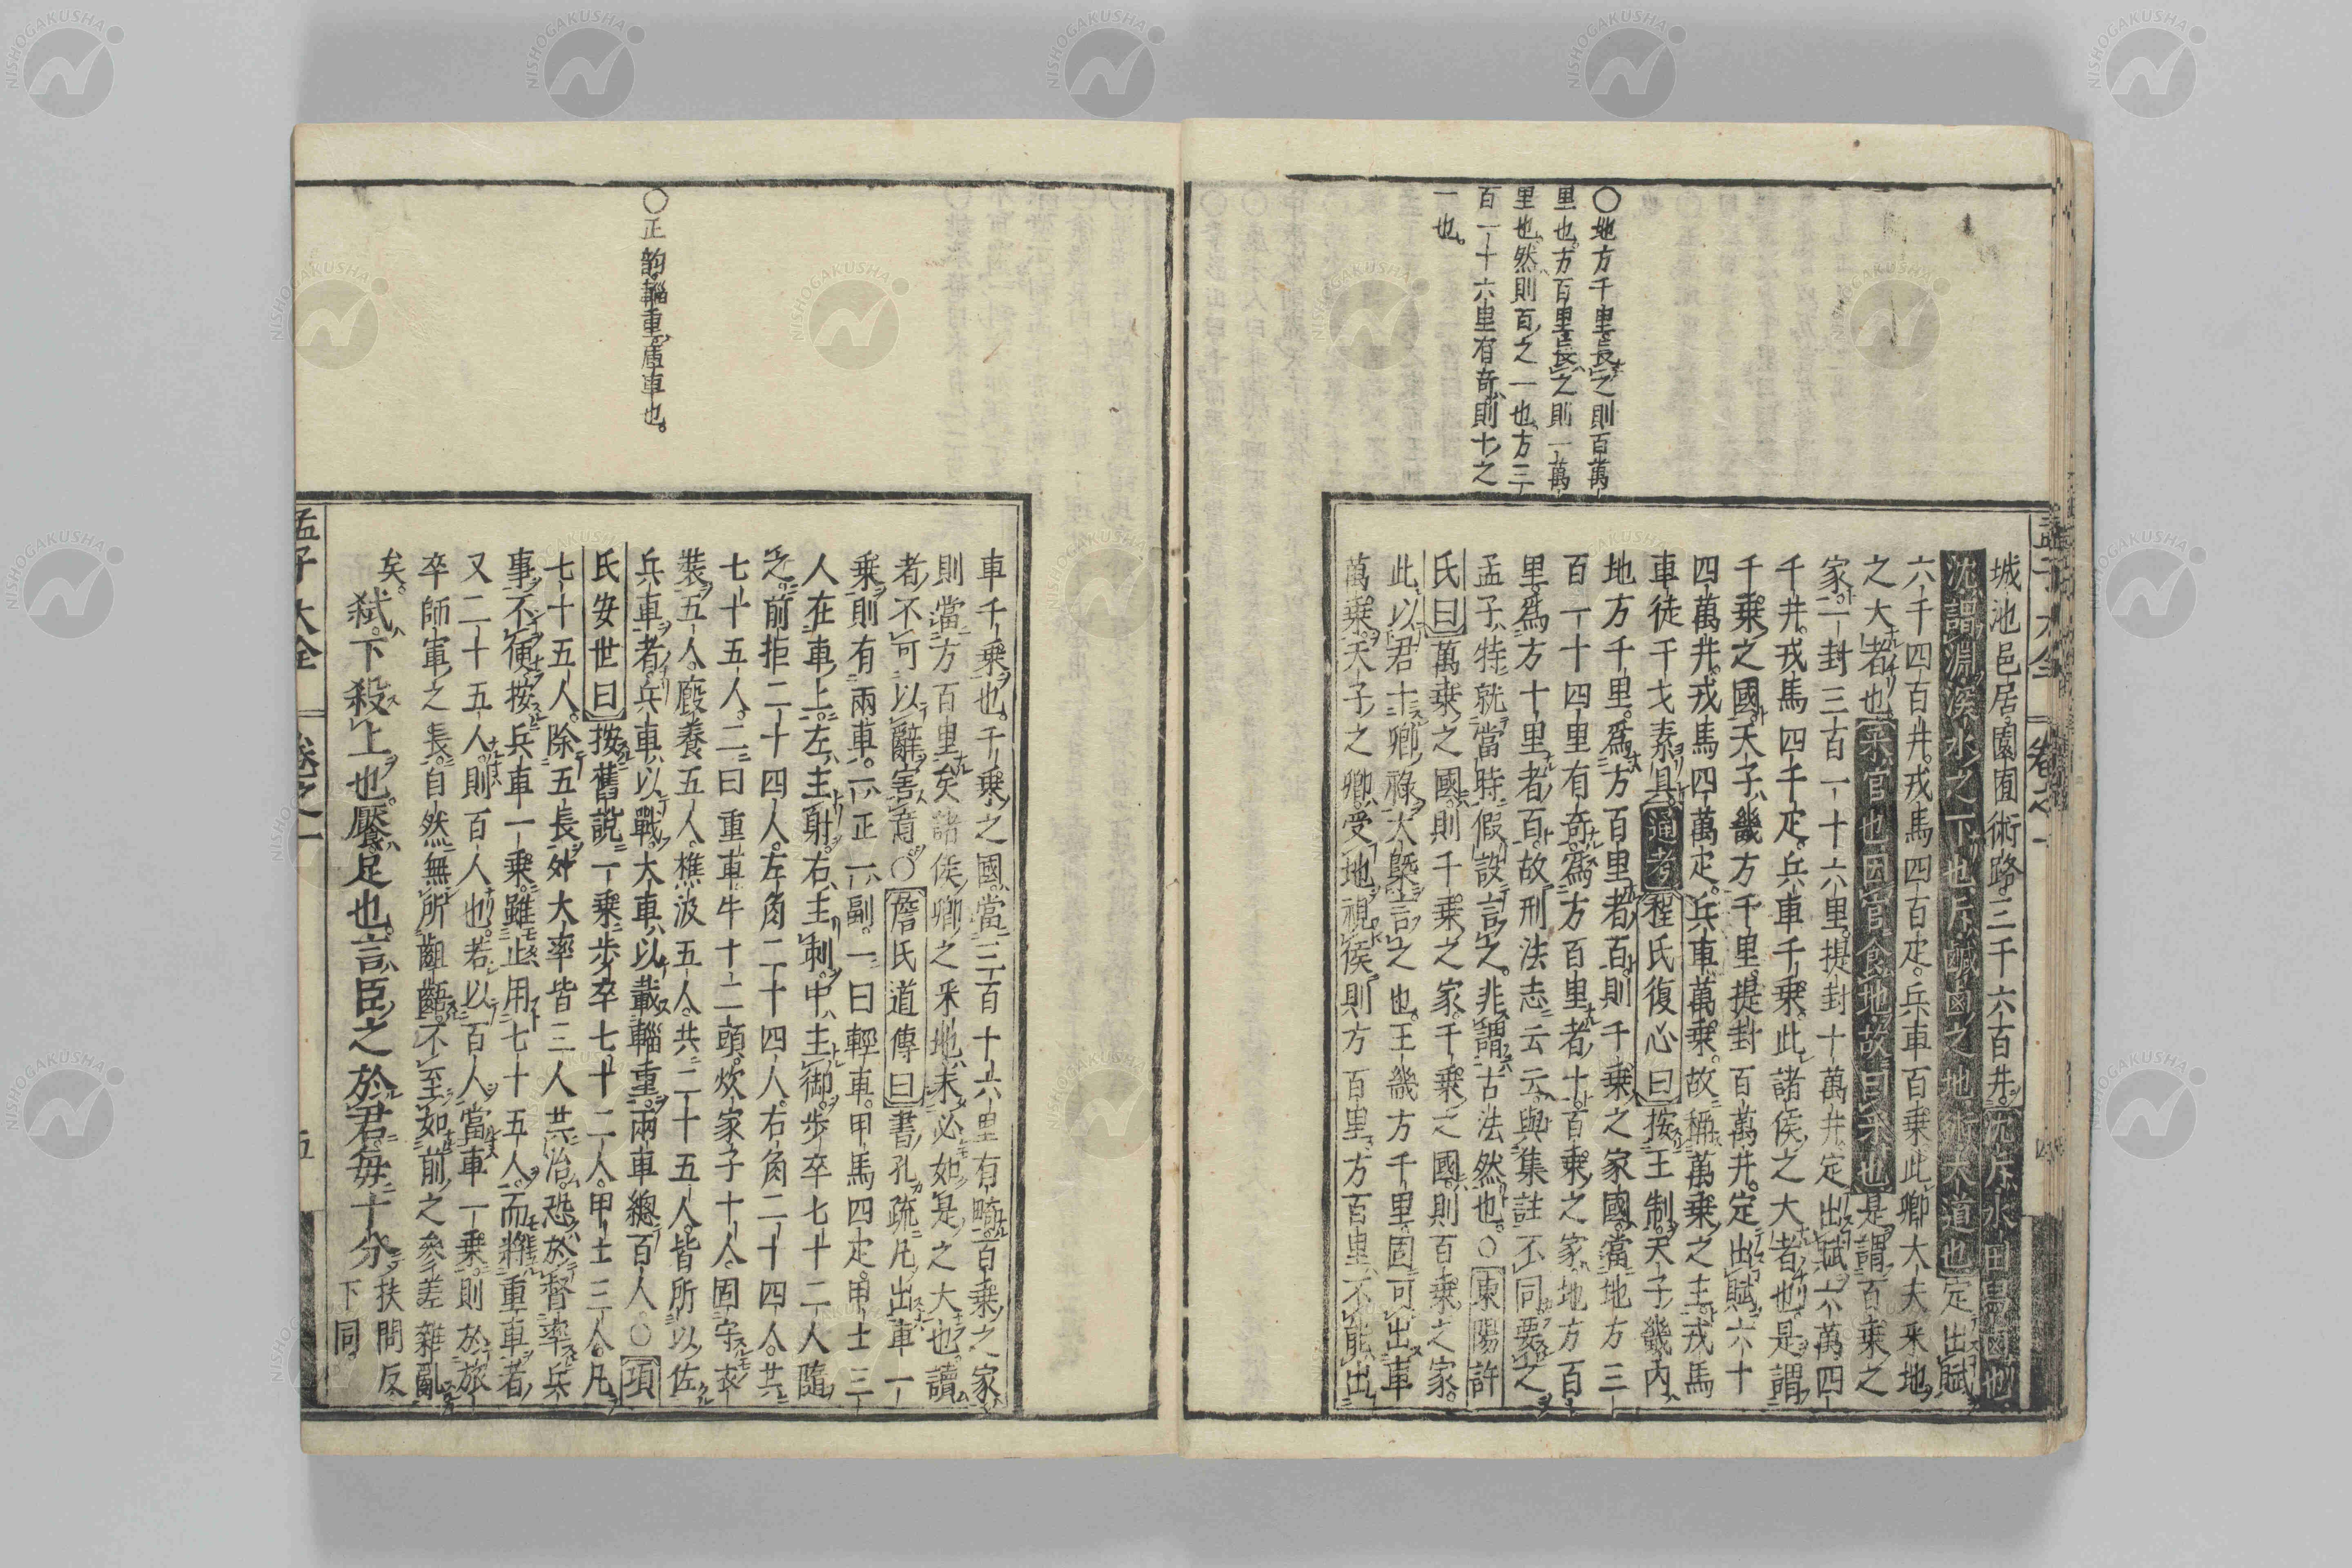 〇地方千里長之則百萬
里也方百里長之則一萬
里也然則百之一也方三
百一十六里有奇則十之
一也
城池邑居園囿術路三千六百井沈斥水田舄鹵也
沈謂淵深水之下也斥鹹鹵之地術大道也定出賦
六千四百井戎馬四百疋兵車百乗此卿大夫采地
之大者也采官也因官食地故曰采也是謂百乗之
家一封三百一十六里提封十萬井定出賦六萬四
千井戎馬四千疋兵車千乗此諸侯之大者也是謂
千乗之國天子畿方千里提封百萬井定出賦六十
四萬井戎馬四萬疋兵車萬乗故稱萬乗之主戎馬
車徒干戈素具通考程氏復心曰按王制天子畿內
地方千里爲方百里者百則千乗之家國當地方三
百一十四里有奇爲方百里者十百乗之家地方百
里爲方十里者百故刑法志云云與集註不同要之
孟子特就當時假設言之非謂古法然也〇東陽許
氏曰萬乗之國則千乗之家千乗之國則百乗之家
此以君十卿祿大槩言之也王畿方千里固可出車
萬乗天子之卿受地視侯則方百里方百里不能出
孟子大全 卷之一
〇正韵輜重庫車也
車千乗也千乗之國當三百十六里有畸百乗之家
則當方百里矣諸侯卿之采地未必如是之大也讀
者不可以辭害意〇詹氏道傳曰書孔疏凡出車一
乗則有兩車一正一副一曰輕車甲馬四疋甲士三
人在車上左主射右主刺中主御步卒七十二人隨
之前拒二十四人左角二十四人右角二十四人共
七十五人二曰重車牛十二頭炊家子十人固守衣
裝五人廏養五人樵汲五人共二十五人皆所以佐
兵車者兵車以戰大車以載輜重兩車總百人〇項
氏安世曰按舊說一乗步卒七十二人甲士三人凡
七十五人除五長外大率皆三人共治恐於督率兵
事不便按兵車一乗雖止用七十五人而將重車者
又二十五人則百人也若以百人當車一乗則於旅
卒師軍之長自然無所齟齬不至如前之參差雜亂
矣
弒下殺上也饜足也言臣之於君每十分扶問反下同
孟子大全 卷之一 五